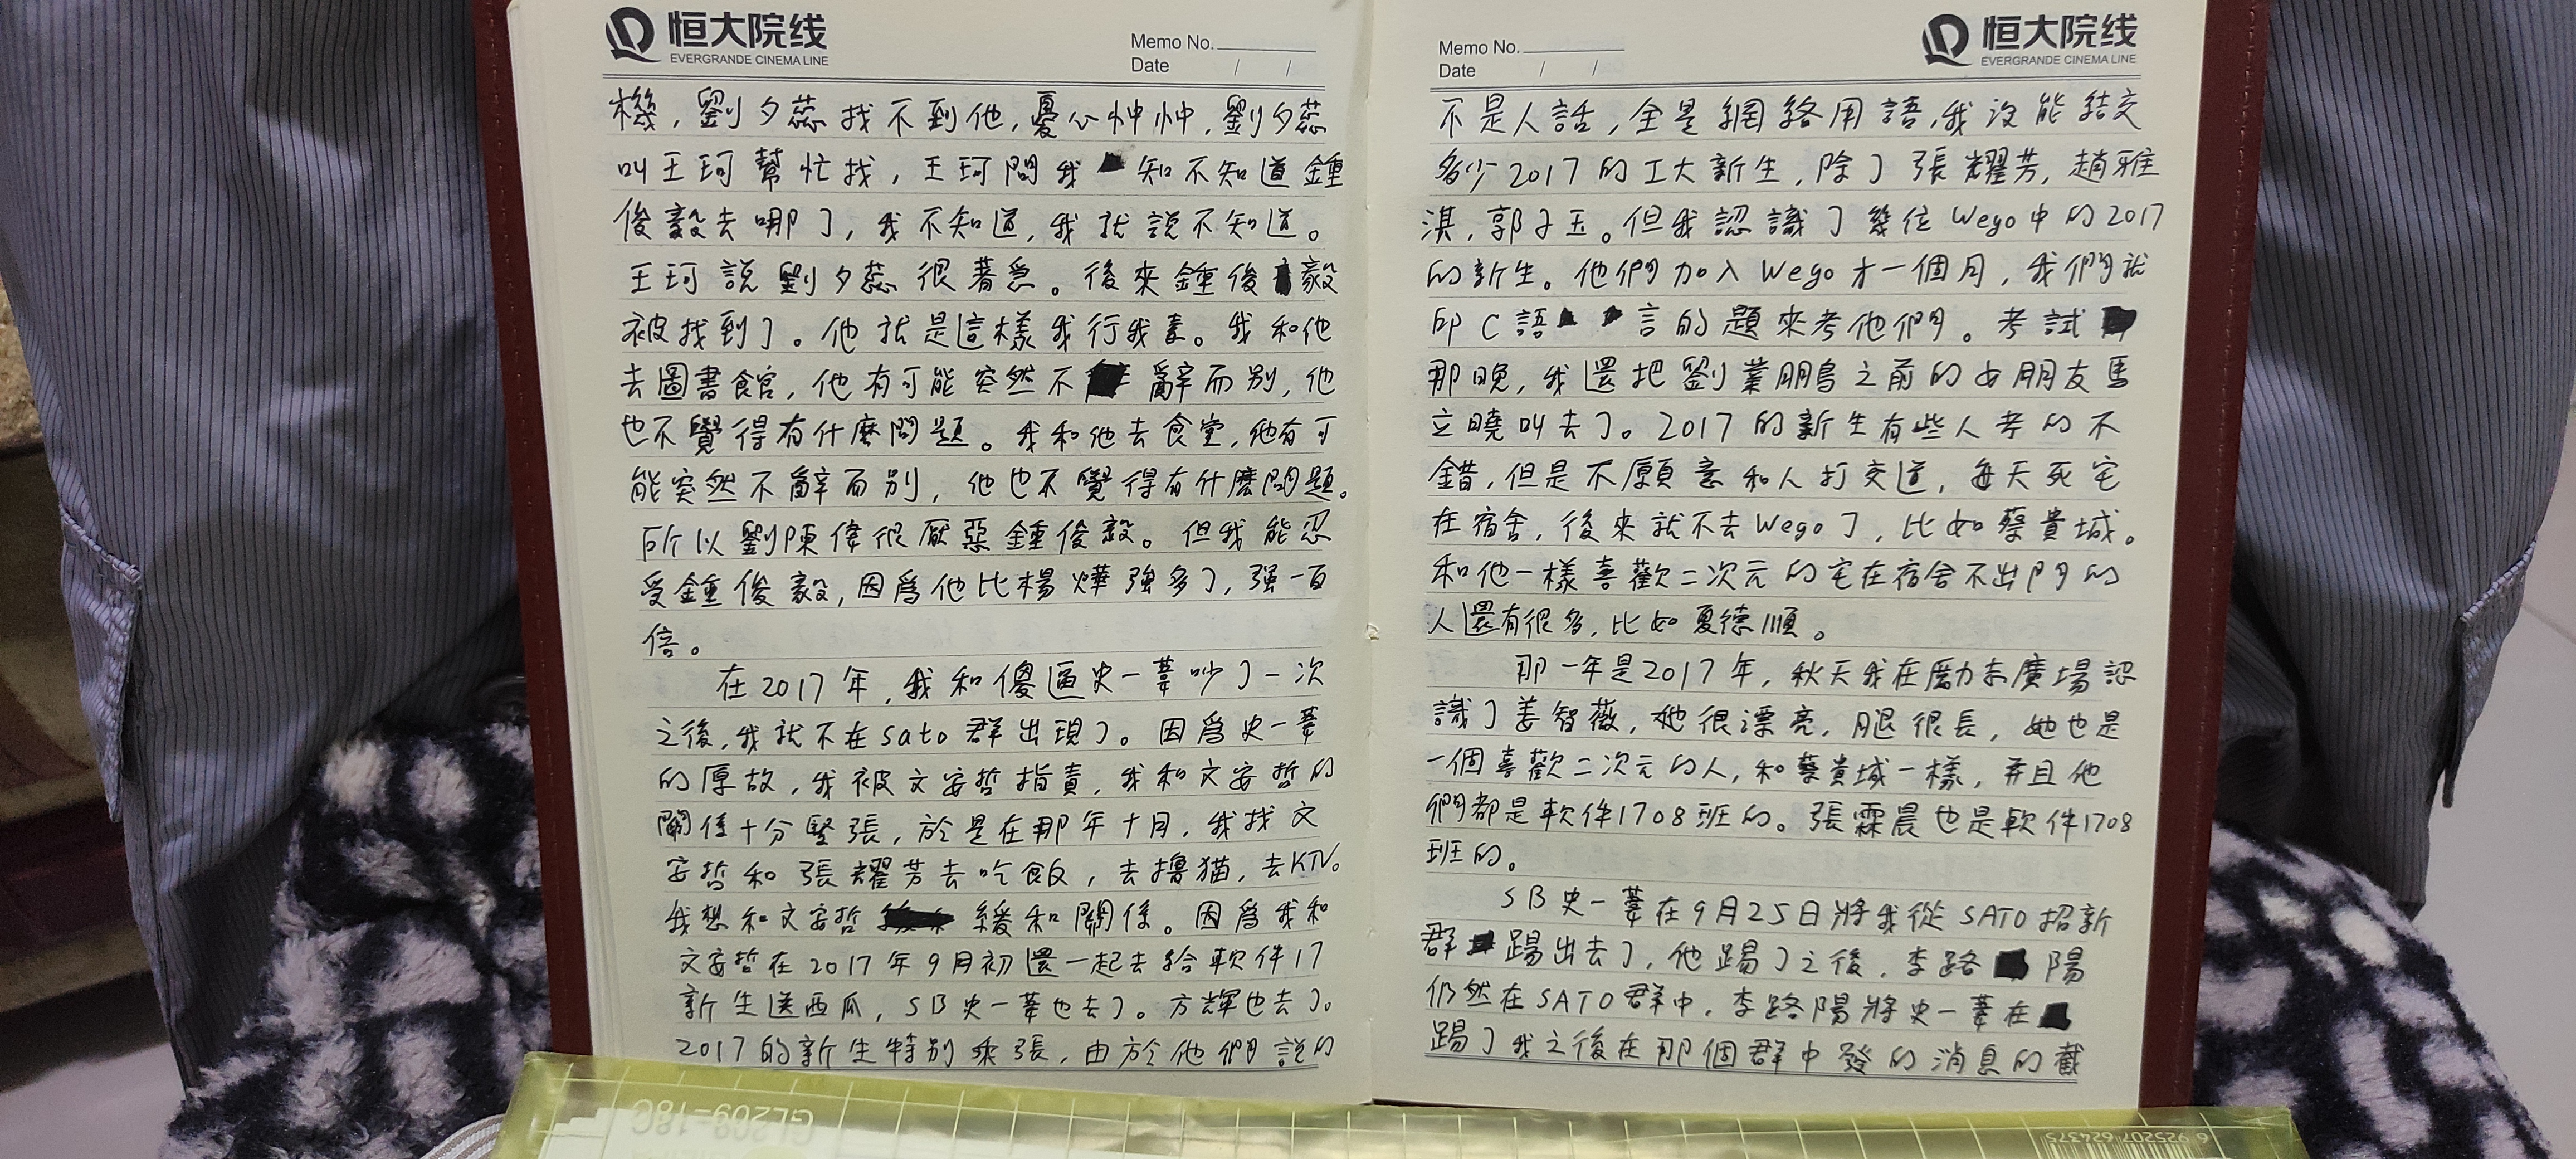 恒大院线
EVERGRANDE CINEMA LINE
Memo No.
Date / /
機，劉夕蕊找不到他，憂心忡忡，劉夕蕊
叫王珂幫忙找，王珂問我知不知道鍾
俊毅去哪了，我不知道，我就說不知道。
王珂說劉夕蕊很著急。後來鍾俊毅
被找到了。他就是這樣我行我素。我和他
去圖書館，他有可能突然不辭而別，他
也不覺得有什麼問題。我和他去食堂，他有可
能突然不辭而別，他也不覺得有什麼問題。
所以劉陳偉很厭惡鍾俊毅。但我能忍
受鍾俊毅，因爲他比楊燁強多了，强一百
倍。
在2017年，我和傻逼史一葦吵了一次
之後，我就不在sato群出現了。因爲史一葦
的原故，我被文安哲指責，我和文安哲的
關係十分緊張，於是在那年十月，我找文
安哲和張耀芳去吃飯，去擼猫，去KTV。
我想和文安哲緩和關係。因爲我和
文安哲在2017年9月初還一起去給軟件17
新生送西瓜，SB史一葦也去了。方輝也去了。
2017的新生特別乖張，由於他們說的
恒大院线
EVERGRANDE CINEMA LINE
Memo No.
Date / /
不是人話，全是網絡用語，我沒能結交
多少2017的工大新生，除了張耀芳，趙雅
淇，郭子玉。但我認識了幾位Wego中的2017
的新生。他們加入Wego才一個月，我們就
印C語言的題來考他們。考試
那晚，我還把劉業鵬之前的女朋友馬
立曉叫去了。2017的新生有些人考的不
錯，但是不願意和人打交道，每天死宅
在宿舍，後來就不去Wego了，比如蔡貴城。
和他一樣喜歡二次元的宅在宿舍不出門的
人還有很多，比如夏德順。
那一年是2017年，秋天我在勵志廣場認
識了姜智薇，她很漂亮，腿很長，她也是
一個喜歡二次元的人，和蔡貴城一樣，并且他
們都是軟件1708班的。張霖晨也是軟件1708
班的。
SB史一葦在9月25日將我從SATO招新
群踢出去了，他踢了之後，李路陽
仍然在SATO群中，李路陽將史一葦在
踢了我之後在那個群中發的消息的截
GL209-18C
6 925207 624375